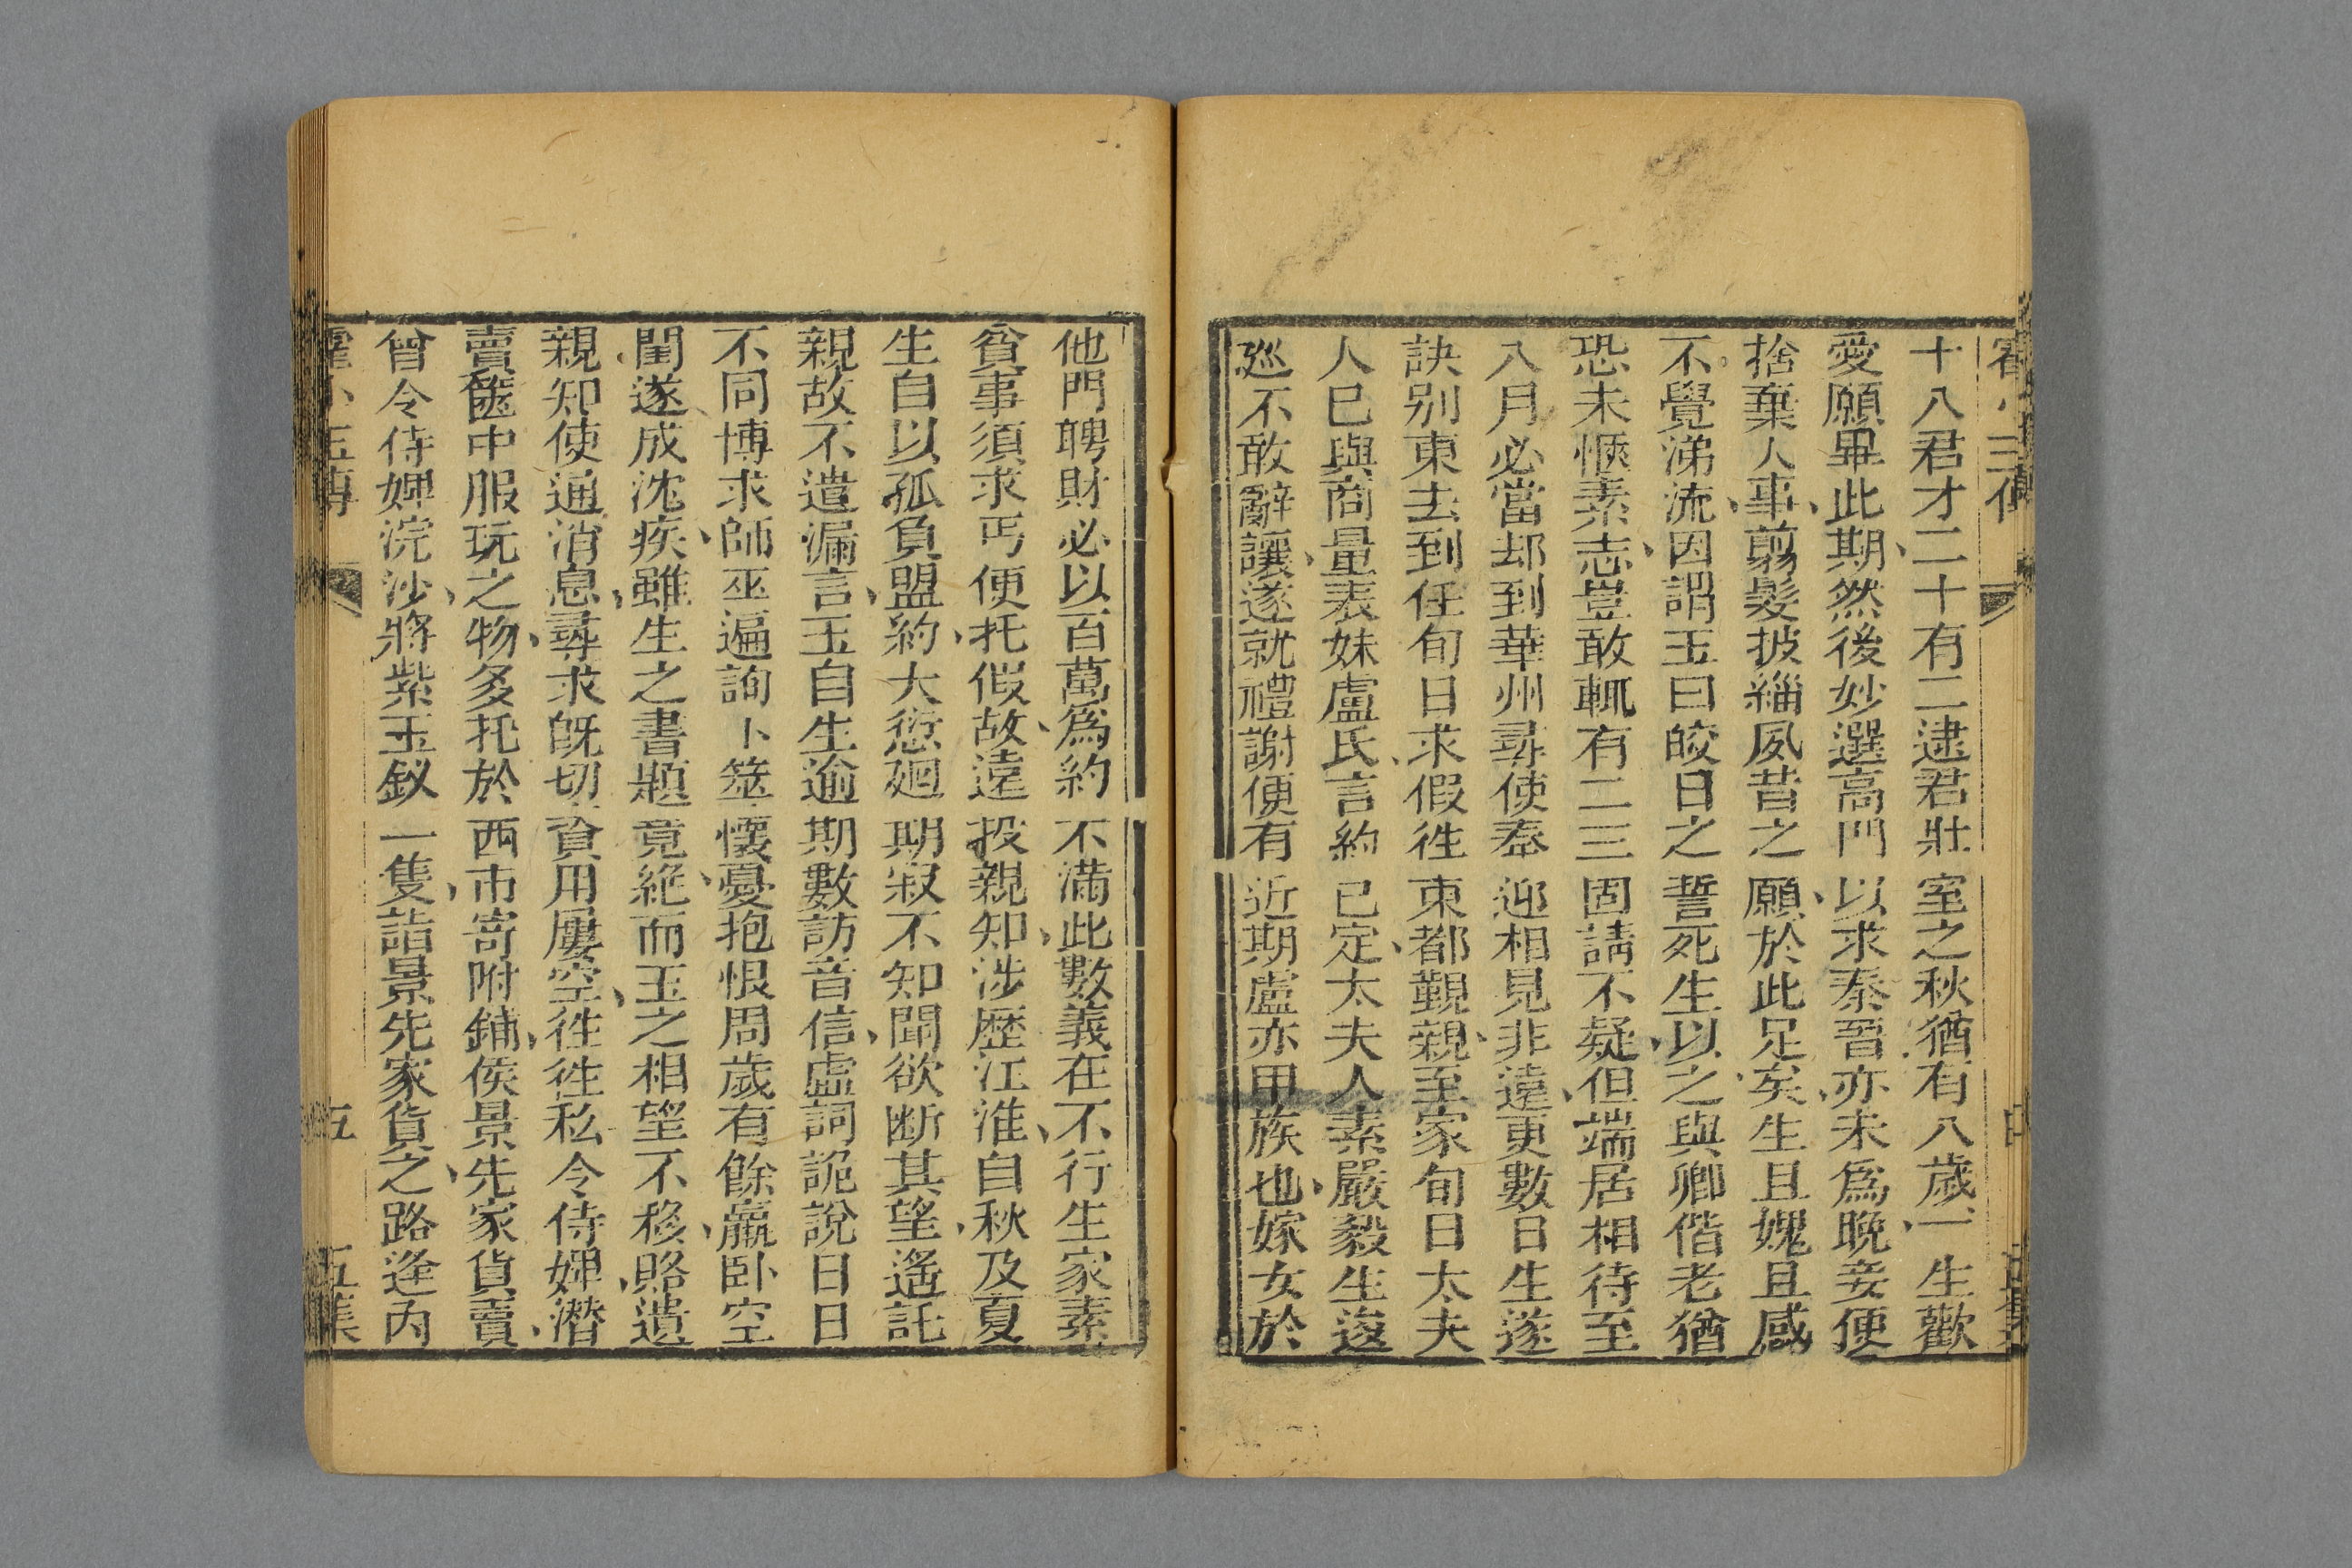 十八君才二十有二逮君壯室之秋猶有八歲一生歡
愛願畢此期然後妙選高門以求秦晉亦未爲晚妾便
捨棄人事剪髮披緇夙昔之願於此足矣生且媿且感
不覺涕流因謂玉曰皎日之誓死生以之與卿偕老猶
恐未愜素志豈敢輒有二三固請不疑但端居相待至
八月必當却到華州尋使奉迎相見非遠更數日生遂
訣别東去到任旬日求假徃東都覲親至家旬日太夫
人已與商量表妹盧氏言約已定太夫人素嚴毅生逡
廵不敢辭讓遂就禮謝便有近期盧亦甲族也嫁女於
他門聘財必以百萬爲約不滿此數義在不行生家素
貧事須求丐便托假故遠投親知涉歷江淮自秋及夏
生自以孤負盟約大愆廻期寂不知聞欲断其望遙託
親故不遣漏言玉自生逾期數訪音信虛詞詭說日日
不同博求師巫遍詢卜筮懷憂抱恨周歲有餘羸卧空
閨遂成沈疾雖生之書題竟絶而玉之相望不移賂遺
親知使通消息尋求旣切資用屢空徃徃私令侍婢潜
賣篋中服玩之物多托於西市寄附鋪侯景先家貨賣
曾令侍婢浣沙將紫玉釵一隻詣景先家貨之路逢內
霍小玉傳 五 五集